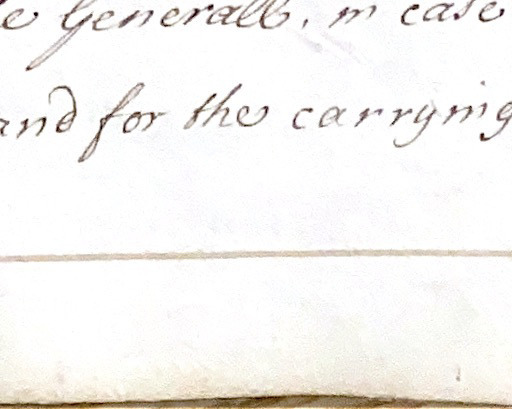 e Generall, in case
and for the carrying